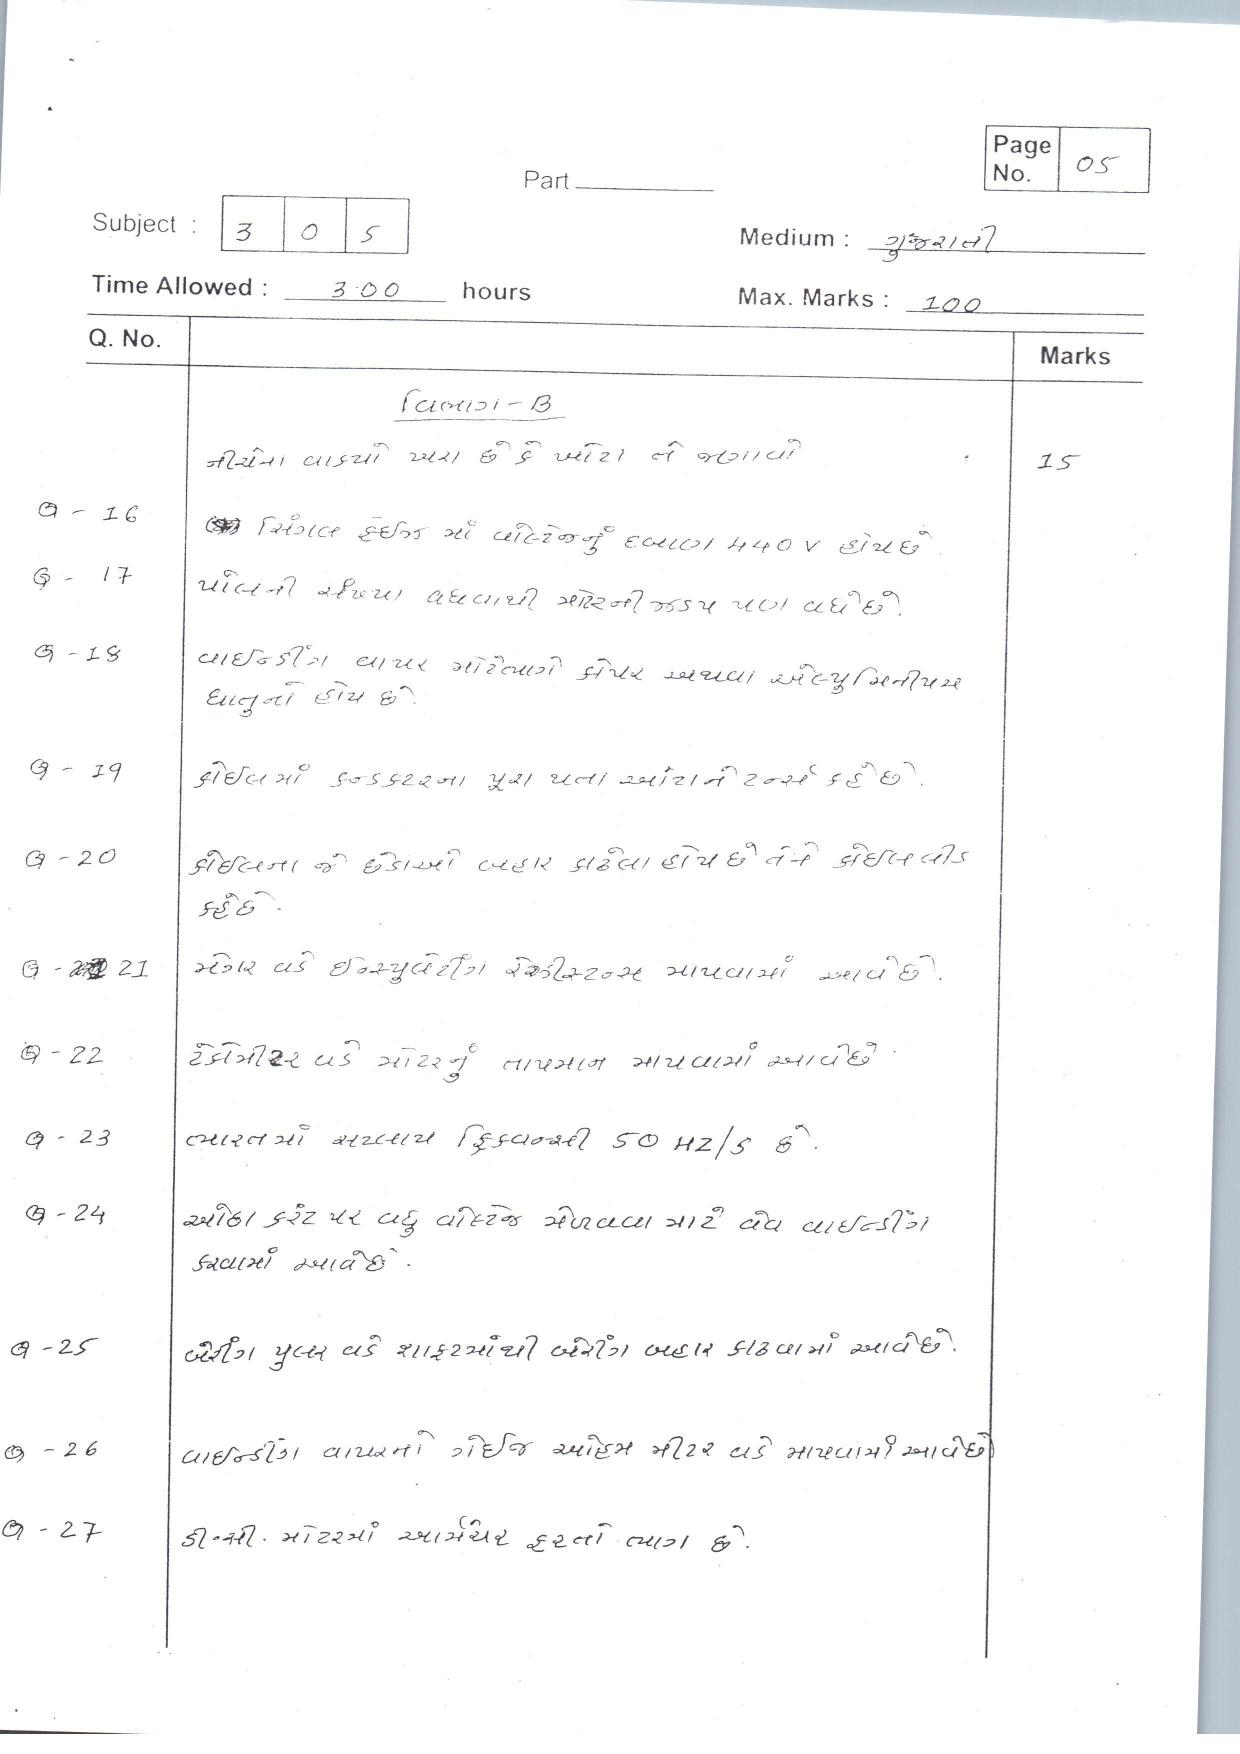 Page No. 05
Part
Subject : 3 0 5
Medium : ગુજરાતી
Time Allowed : 3.00 hours
Max. Marks : 100
Q. No.
Marks
વિભાગ - B
નીચેના વાક્યો ખરા છે કે ખોટા તે જણાવો 15
Q - 16 સિંગલ ફેઈઝ માં વોલ્ટેજનું દબાણ 440 V હોય છે.
Q - 17 પોલની સંખ્યા વધવાથી મોટરની ઝડપ પણ વધે છે.
Q - 18 વાઈન્ડીંગ વાયર મોટેભાગે કોપર અથવા એલ્યુમિનીયમ
ધાતુનાં હોય છે.
Q - 19 કોઈલમાં કન્ડક્ટરના પુરા થતા આંટાને ટર્ન્સ કહે છે.
Q - 20 કોઈલના જે છેડાઓ બહાર કાઢેલા હોય છે તેને કોઈલ લીડ
કહે છે.
Q - 21 મેગર વડે ઈન્સ્યુલેટીંગ રેઝીસ્ટન્સ માપવામાં આવે છે.
Q - 22 ટેકોમીટર વડે મોટરનું તાપમાન માપવામાં આવે છે.
Q - 23 ભારતમાં સપ્લાય ફ્રિક્વન્સી 50 HZ/S છે.
Q - 24 ઓછા કરંટ પર વધુ વોલ્ટેજ મેળવવા માટે વેવ વાઈન્ડીંગ
કરવામાં આવે છે.
Q - 25 બેરીંગ પુલર વડે શાફ્ટમાંથી બેરીંગ બહાર કાઢવામાં આવે છે.
Q - 26 વાઈન્ડીંગ વાયરનો ગેઈજ ઓહમ મીટર વડે માપવામાં આવે છે
Q - 27 ડી.સી. મોટરમાં આર્મેચર ફરતો ભાગ છે.